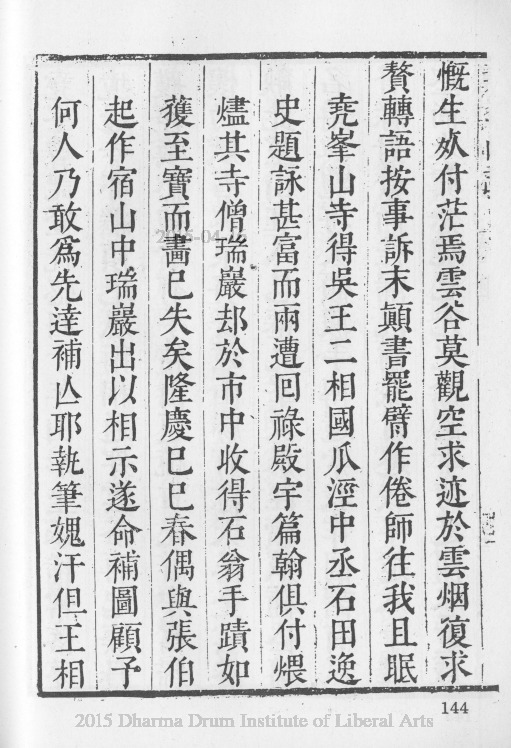 慨生死付茫焉雲谷莫觀空求迹於雲烟復求
贅轉語按事訴末顛書罷臂作倦師往我且眠
堯峯山寺得吳王二相國瓜涇中丞石田逸
史題詠甚富而兩遭回祿殿宇篇翰俱付煨
燼其寺僧瑞巖却於市中收得石翁手蹟如
獲至寶而畵已失矣隆慶己巳春偶與張伯
起作宿山中瑞巖出以相示遂命補圖顧予
何人乃敢爲先達補亾耶執筆媿汗但王相
144
2015 Dharma Drum Institute of Liberal Arts